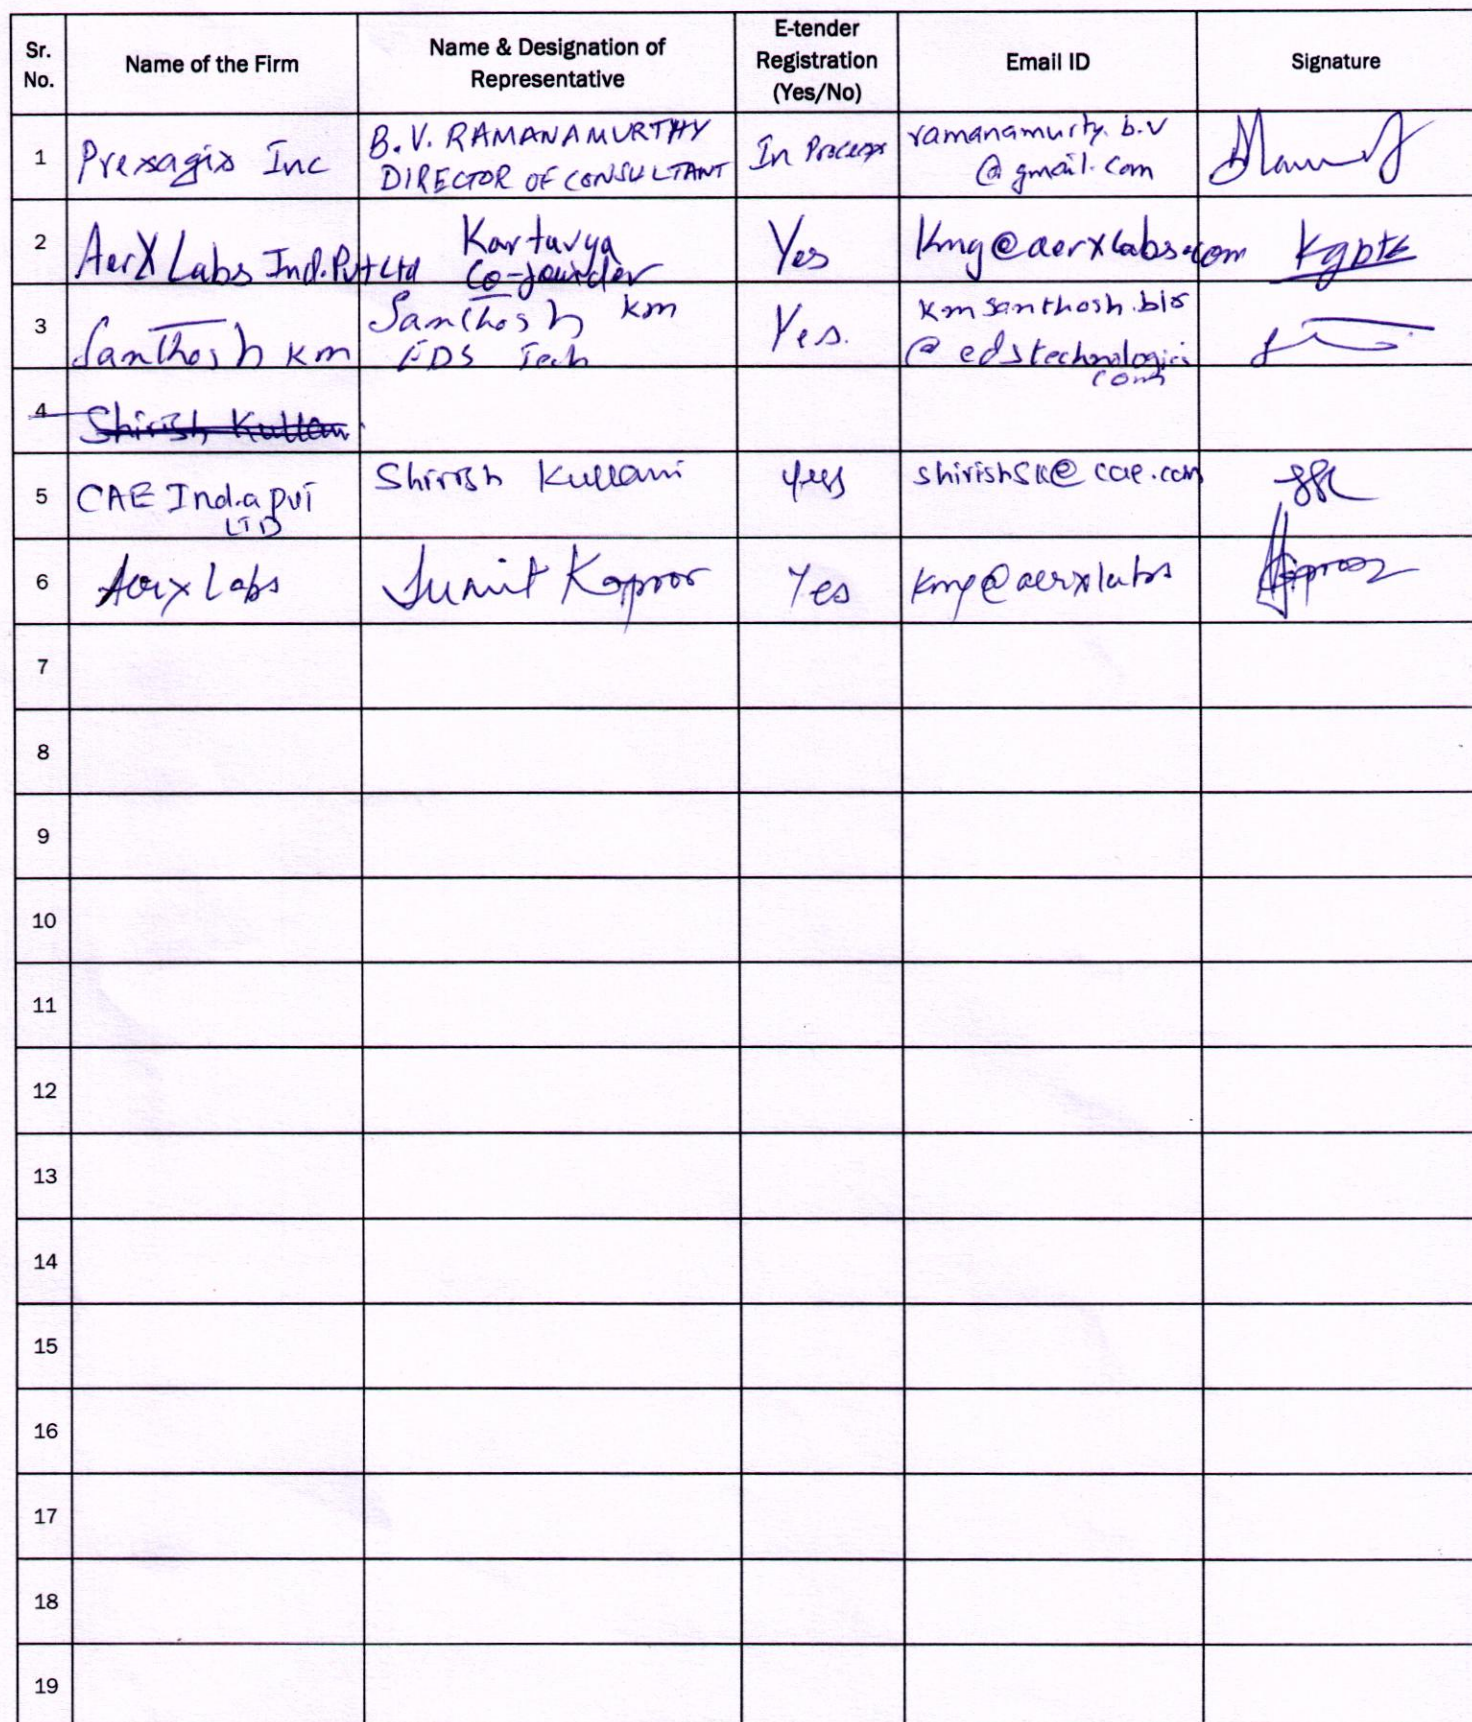 Sr. No.
Name of the Firm
Name & Designation of Representative
E-tender Registration (Yes/No)
Email ID
Signature
1
Presagis Inc
B.V. RAMANAMURTHY
DIRECTOR OF CONSULTANT
In Process
ramanamurty.b.v
@gmail.com
2
AerX Labs Ind. Pvt Ltd
Kartavya
Co-founder
Yes
Kmg@aerxlabs.com
3
Santhosh km
Santhosh km
EDS Tech
Yes.
km santhosh.bis
@edstechnologies
com
4
Shirish
5
CAE India Pvt
LTD
Shirish Kullani
yes
shirishsk@cae.com
6
Aerx Labs
Sumit Kapoor
Yes
kmg@aerxlabs
7
8
9
10
11
12
13
14
15
16
17
18
19